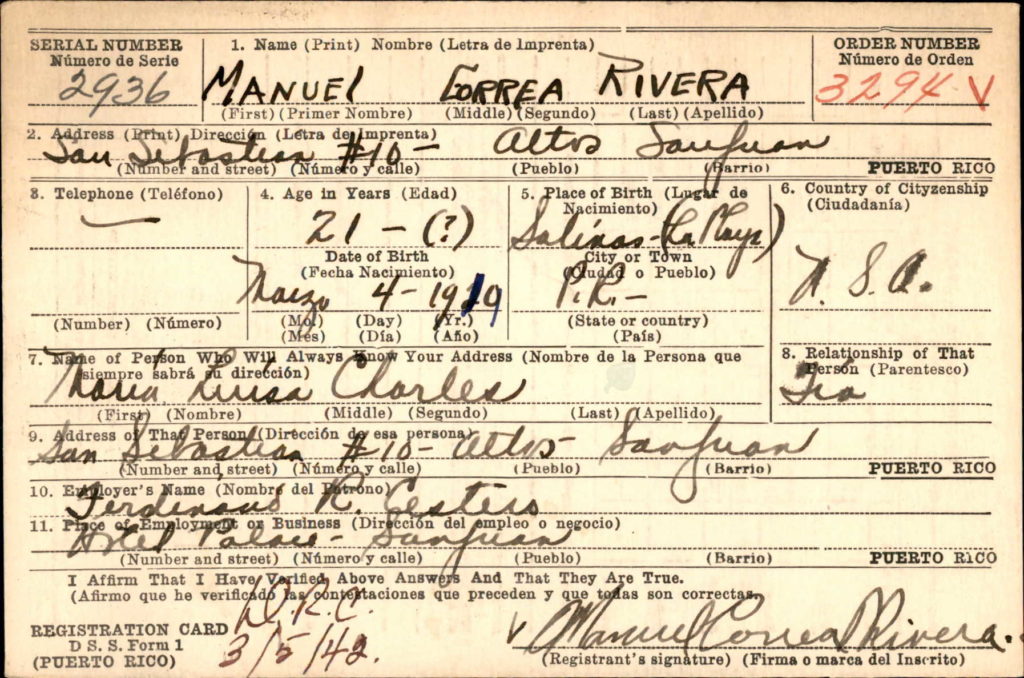 SERIAL NUMBER 1. Name (Print) Nombre (Letra de Imprenta) ORDER NUMBER
Número de Serie Número de Orden
2936 MANUEL CORREA RIVERA 3294 V
(First) (Primer Nombre) (Middle) (Segundo) (Last) (Apellido)
2. Address (Print) Dirección (Letra de Imprenta)
San Sebastian #10- Altos San Juan
(Number and street) (Número y calle) (Pueblo) (Barrio) PUERTO RICO
3. Telephone (Teléfono) 4. Age in Years (Edad) 5. Place of Birth (Lugar de Nacimiento) 6. Country of Cityzenship (Ciudadanía)
— 21 - (?) Salinas-(La Playa)
Date of Birth City or Town
(Fecha Nacimiento) (Ciudad o Pueblo)
Marzo 4- 19 P.R.- U.S.A.
(Number) (Número) (Mo.) (Day) (Yr.) (State or country)
(Més) (Día) (Año) (País)
7. Name of Person Who Will Always Know Your Address (Nombre de la Persona que siempre sabrá su dirección) 8. Relationship of That Person (Parentesco)
Maria Luisa Charles Tia
(First) (Nombre) (Middle) (Segundo) (Last) (Apellido)
9. Address of That Person (Dirección de esa persona)
San Sebastian #10- Altos- San Juan
(Number and street) (Número y calle) (Pueblo) (Barrio) PUERTO RICO
10. Employer's Name (Nombre del Patrono)
Ferdinand R. Cestero
11. Place of Employment or Business (Dirección del empleo o negocio)
Hotel Palace- San Juan
(Number and street) (Número y calle) (Pueblo) (Barrio) PUERTO RICO
I Affirm That I Have Verified Above Answers And That They Are True.
(Afirmo que he verificado las contestaciones que preceden y que todas son correctas.
D.R.C.
REGISTRATION CARD 3/5/42. V Manuel Correa Rivera.
D S. S. Form 1
(PUERTO RICO) (Registrant's signature) (Firma o marca del Inscrito)